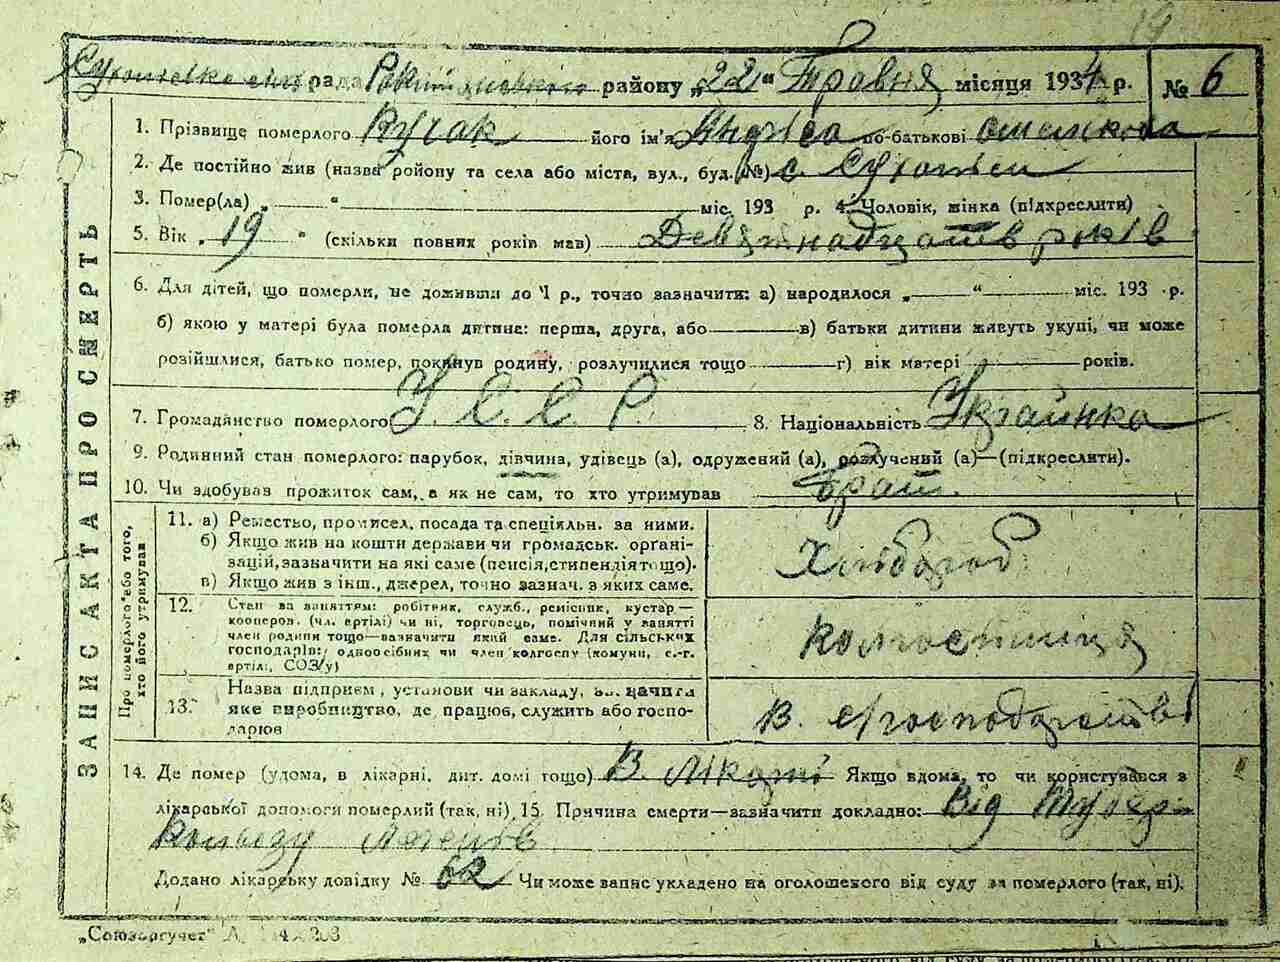 рада району „22“ Травня місяця 1934 р. № 6
1. Прізвище померлого його ім'я по-батькові
2. Де постійно жив (назва ройону та села або міста, вул., буд. №) с.
3. Помер(ла) „ “ міс. 193 р. 4. Чоловік, жінка (підхреслити)
5. Вік „19 “ (скільки повних років мав) Девятнадцать років
6. Для дітей, що померли, не доживши до 1 р., точно зазначити: а) народилося „ “ міс. 193 р.
б) якою у матері була померла дитина: перша, друга, або в) батьки дитини живуть укупі, чи може
розійшлися, батько помер, покинув родину, розлучилися тощо г) вік матері років.
7. Громадянство померлого У.С.С.Р. 8. Національність Українка
9. Родинний стан померлого: парубок, дівчина, удівець (а), одружений (а), розлучений (а)—(підкреслити).
10. Чи здобував прожиток сам, а як не сам, то хто утримував брат.
ЗАПИС АКТА ПРО СМЕРТЬ
Про померлого або того,
хто його утримував
11. а) Ремество, промисел, посада та спеціяльн. за ними.
б) Якщо жив на кошти держави чи громадськ. органі-
зацій, зазначити на які саме (пенсія, стипендія тощо).
в) Якщо жив з інш., джерел, точно зазнач. з яких саме.
Хлібороб
12. Стан за заняттям: робітник, служб., ремісник, кустар—
кооперов. (чл. артілі) чи ні, торговець, помічний у занятті
член родини тощо—зазначити який саме. Для сільських
господарів: одноосібник чи член колгоспу (комуни, с.-г.
артілі, СОЗ/у)
колгоспниця
13. Назва підприєм., установи чи закладу, зазначити
яке виробництво, де працює, служить або госпо-
дарює
в с/господарстві
14. Де помер (удома, в лікарні, дит. домі тощо) В лікарні Якщо вдома, то чи користувався з
лікарської допомоги померлий (так, ні) 15. Причина смерти—зазначити докладно: Від тубер-
кольозу легенів
Додано лікарську довідку № 62 Чи може запис укладено на оголошеного від суду за померлого (так, ні).
„Союзоргучет“